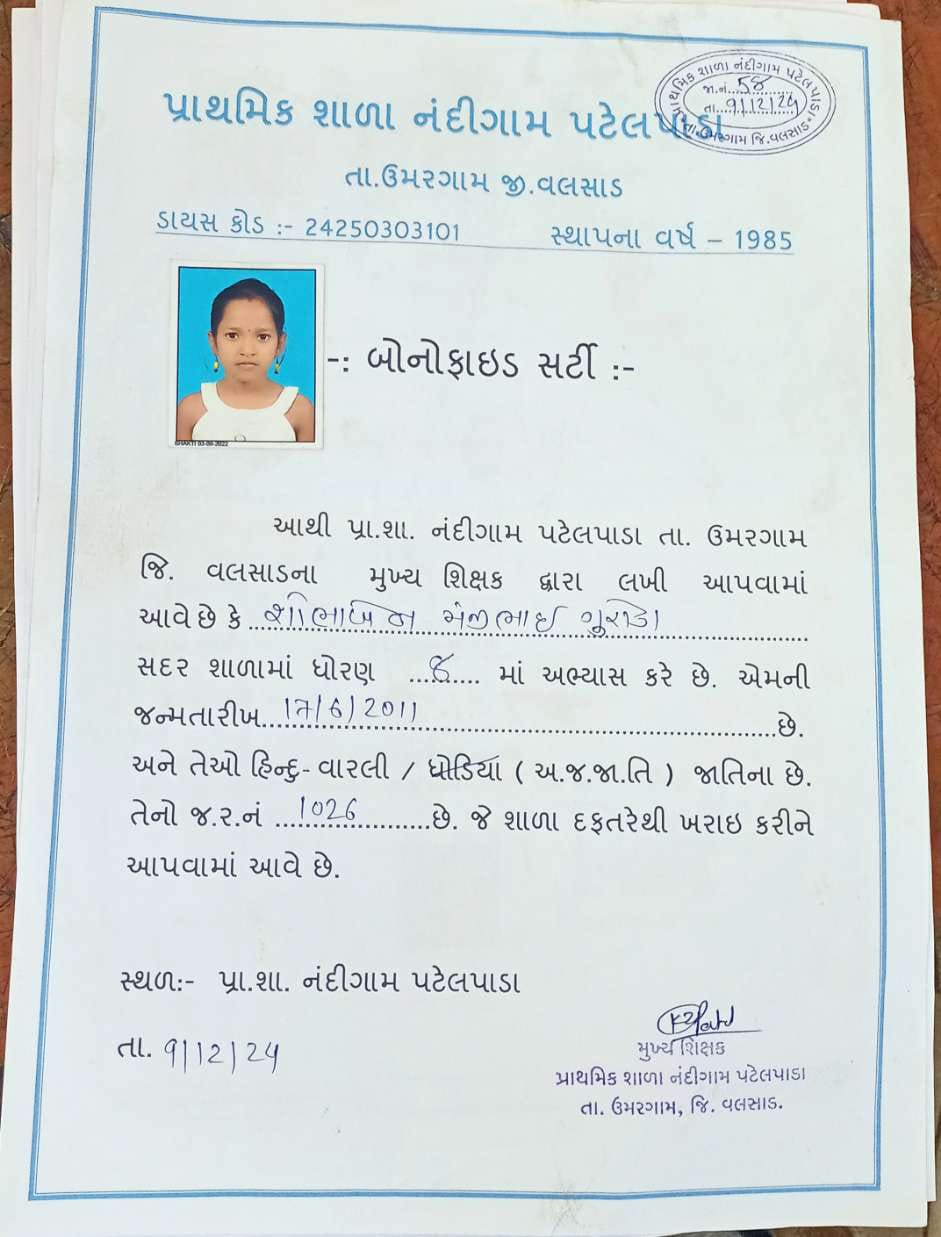 પ્રાથમિક શાળા નંદીગામ પટેલપાડા
પ્રાથમિક શાળા નંદીગામ પટેલપાડા
જા.નં...58
તા...9/12/24
તા.ઉમરગામ જિ.વલસાડ
તા.ઉમરગામ જી.વલસાડ
ડાયસ કોડ :- 24250303101 સ્થાપના વર્ષ – 1985
-: બોનોફાઇડ સર્ટી :-
SHAKTI 03-09-2022
આથી પ્રા.શા. નંદીગામ પટેલપાડા તા. ઉમરગામ
જિ. વલસાડના મુખ્ય શિક્ષક દ્વારા લખી આપવામાં
આવે છે કે શોભાબેન
સદર શાળામાં ધોરણ ...૪.... માં અભ્યાસ કરે છે. એમની
જન્મતારીખ...17/6/2011...છે.
અને તેઓ હિન્દુ- વારલી / ધોડિયા ( અ.જ.જા.તિ ) જાતિના છે.
તેનો જ.ર.નં ...1026...છે. જે શાળા દફતરેથી ખરાઇ કરીને
આપવામાં આવે છે.
સ્થળ:- પ્રા.શા. નંદીગામ પટેલપાડા
તા. 9/12/24
મુખ્ય શિક્ષક
પ્રાથમિક શાળા નંદીગામ પટેલપાડા
તા. ઉમરગામ, જિ. વલસાડ.